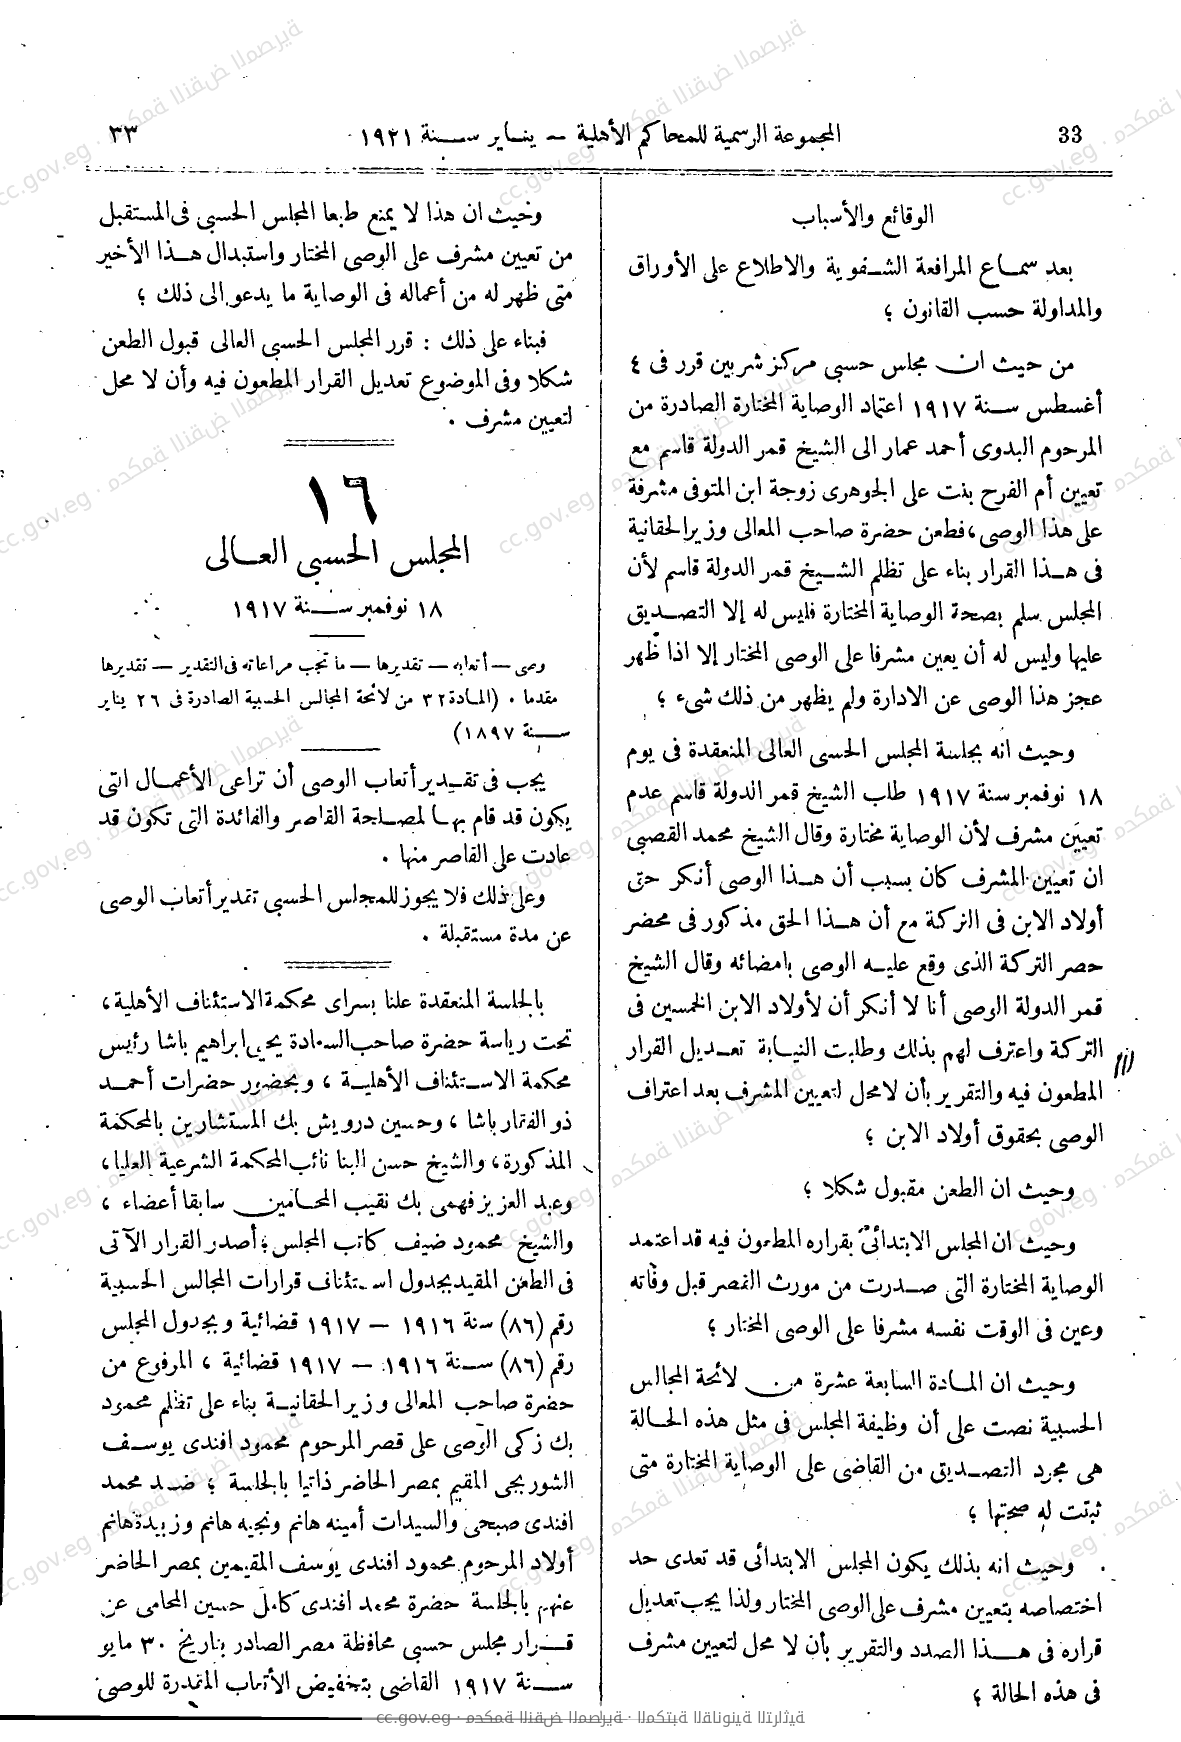 33
المجموعة الرسمية للمحاكم الأهلية — يناير سنة ١٩٢١
٣٣
الوقائع والأسباب
بعد سماع المرافعة الشفوية والاطلاع على الأوراق
والمداولة حسب القانون ؛
من حيث ان مجلس حسبى مركز شربين قرر فى ٤
أغسطس سنة ١٩١٧ اعتماد الوصاية المختارة الصادرة من
المرحوم البدوى أحمد عمار الى الشيخ قمر الدولة قاسم مع
تعيين أم الفرح بنت على الجوهرى زوجة ابن المتوفى مشرفة
على هذا الوصى ، فطعن حضرة صاحب المعالى وزير الحقانية
فى هذا القرار بناء على تظلم الشيخ قمر الدولة قاسم لأن
المجلس سلم بصحة الوصاية المختارة فليس له إلا التصديق
عليها وليس له أن يعين مشرفا على الوصى المختار إلا اذا ظهر
عجز هذا الوصى عن الادارة ولم يظهر من ذلك شىء ؛
وحيث انه بجلسة المجلس الحسبى العالى المنعقدة فى يوم
١٨ نوفمبر سنة ١٩١٧ طلب الشيخ قمر الدولة قاسم عدم
تعيين مشرف لأن الوصاية مختارة وقال الشيخ محمد القصبى
ان تعيين المشرف كان بسبب أن هذا الوصى أنكر حق
أولاد الابن فى التركة مع أن هذا الحق مذكور فى محضر
حصر التركة الذى وقع عليه الوصى بامضائه وقال الشيخ
قمر الدولة الوصى أنا لا أنكر أن لأولاد الابن الخمسين فى
التركة واعترف لهم بذلك وطلبت النيابة تعديل القرار
المطعون فيه والتقرير بأن لا محل لتعيين المشرف بعد اعتراف
الوصى بحقوق أولاد الابن ؛
وحيث ان الطعن مقبول شكلا ؛
وحيث ان المجلس الابتدائى بقراره المطعون فيه قد اعتمد
الوصاية المختارة التى صدرت من مورث القصر قبل وفاته
وعين فى الوقت نفسه مشرفا على الوصى المختار ؛
وحيث ان المادة السابعة عشرة من لائحة المجالس
الحسبية نصت على أن وظيفة المجلس فى مثل هذه الحالة
هى مجرد التصديق من القاضى على الوصاية المختارة متى
ثبتت له صحتها ؛
وحيث انه بذلك يكون المجلس الابتدائى قد تعدى حد
اختصاصه بتعيين مشرف على الوصى المختار ولذا يجب تعديل
قراره فى هذا الصدد والتقرير بأن لا محل لتعيين مشرف
فى هذه الحالة ؛
وحيث ان هذا لا يمنع طبعا المجلس الحسبى فى المستقبل
من تعيين مشرف على الوصى المختار واستبدال هذا الأخير
متى ظهر له من أعماله فى الوصاية ما يدعو الى ذلك ؛
فبناء على ذلك : قرر المجلس الحسبى العالى قبول الطعن
شكلا وفى الموضوع تعديل القرار المطعون فيه وأن لا محل
لتعيين مشرف .
١٦
المجلس الحسبى العالى
١٨ نوفمبر سنة ١٩١٧
وصى — أتعابه — تقديرها — ما تجب مراعاته فى التقدير — تقديرها
مقدما . (المادة ٣٢ من لائحة المجالس الحسبية الصادرة فى ٢٦ يناير
سنة ١٨٩٧)
يجب فى تقدير أتعاب الوصى أن تراعى الأعمال التى
يكون قد قام بها لمصلحة القاصر والفائدة التى تكون قد
عادت على القاصر منها .
وعلى ذلك فلا يجوز للمجلس الحسبى تقدير أتعاب الوصى
عن مدة مستقبلة .
بالجلسة المنعقدة علنا بسراى محكمة الاستئناف الأهلية ،
تحت رياسة حضرة صاحب السعادة يحيى ابراهيم باشا رئيس
محكمة الاستئناف الأهلية ، وبحضور حضرات أحمد
ذو الفقار باشا ، وحسين درويش بك المستشارين بالمحكمة
المذكورة ، والشيخ حسن البنا نائب المحكمة الشرعية العليا ،
وعبد العزيز فهمى بك نقيب المحامين سابقا أعضاء ،
والشيخ محمود ضيف كاتب المجلس ؛ أصدر القرار الآتى
فى الطعن المقيد بجدول استئناف قرارات المجالس الحسبية
رقم (٨٦) سنة ١٩١٦ — ١٩١٧ قضائية وبجدول المجلس
رقم (٨٦) سنة ١٩١٦ — ١٩١٧ قضائية ، المرفوع من
حضرة صاحب المعالى وزير الحقانية بناء على تظلم محمود
بك زكى الوصى على قصر المرحوم محمود افندى يوسف
الشوربجى المقيم بمصر الحاضر ذاتيا بالجلسة ؛ ضد محمد
افندى صبحى والسيدات أمينه هانم ونجيه هانم وزبيدة هانم
أولاد المرحوم محمود افندى يوسف المقيمين بمصر الحاضر
عنهم بالجلسة حضرة محمد افندى كامل حسين المحامى عن
قرار مجلس حسبى محافظة مصر الصادر بتاريخ ٣٠ مايو
سنة ١٩١٧ القاضى بتخفيض الأتعاب المقدرة للوصى
cc.gov.eg · محكمة النقض المصرية · المكتبة القانونية التراثية